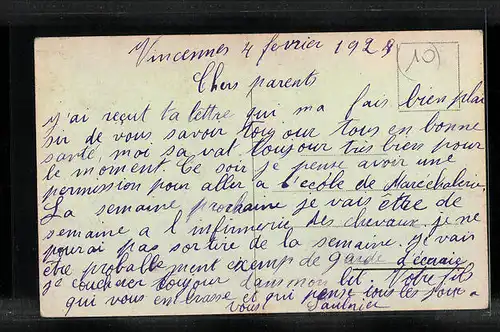 Vincennes 4 fevrier 1929
(10)
Chers parents
j'ai reçut ta lettre qui ma fais bien plai
sir de vous savoir toujour tous en bonne
santé, moi sa vat toujour très bien pour
le moment. Ce soir je pense avoir une
permission pour aller a l'ecole de Maréchalerie
La semaine prochaine je vais être de
semaine a l infirmerie des chevaux. je ne
pourai pas sortire de la semaine. je vais
être probablement exemp de garde d'écurie
je coucherer toujour dans mon lit. Votre fils
qui vous embrasse et qui pense tous les jour a
vous Saulnier